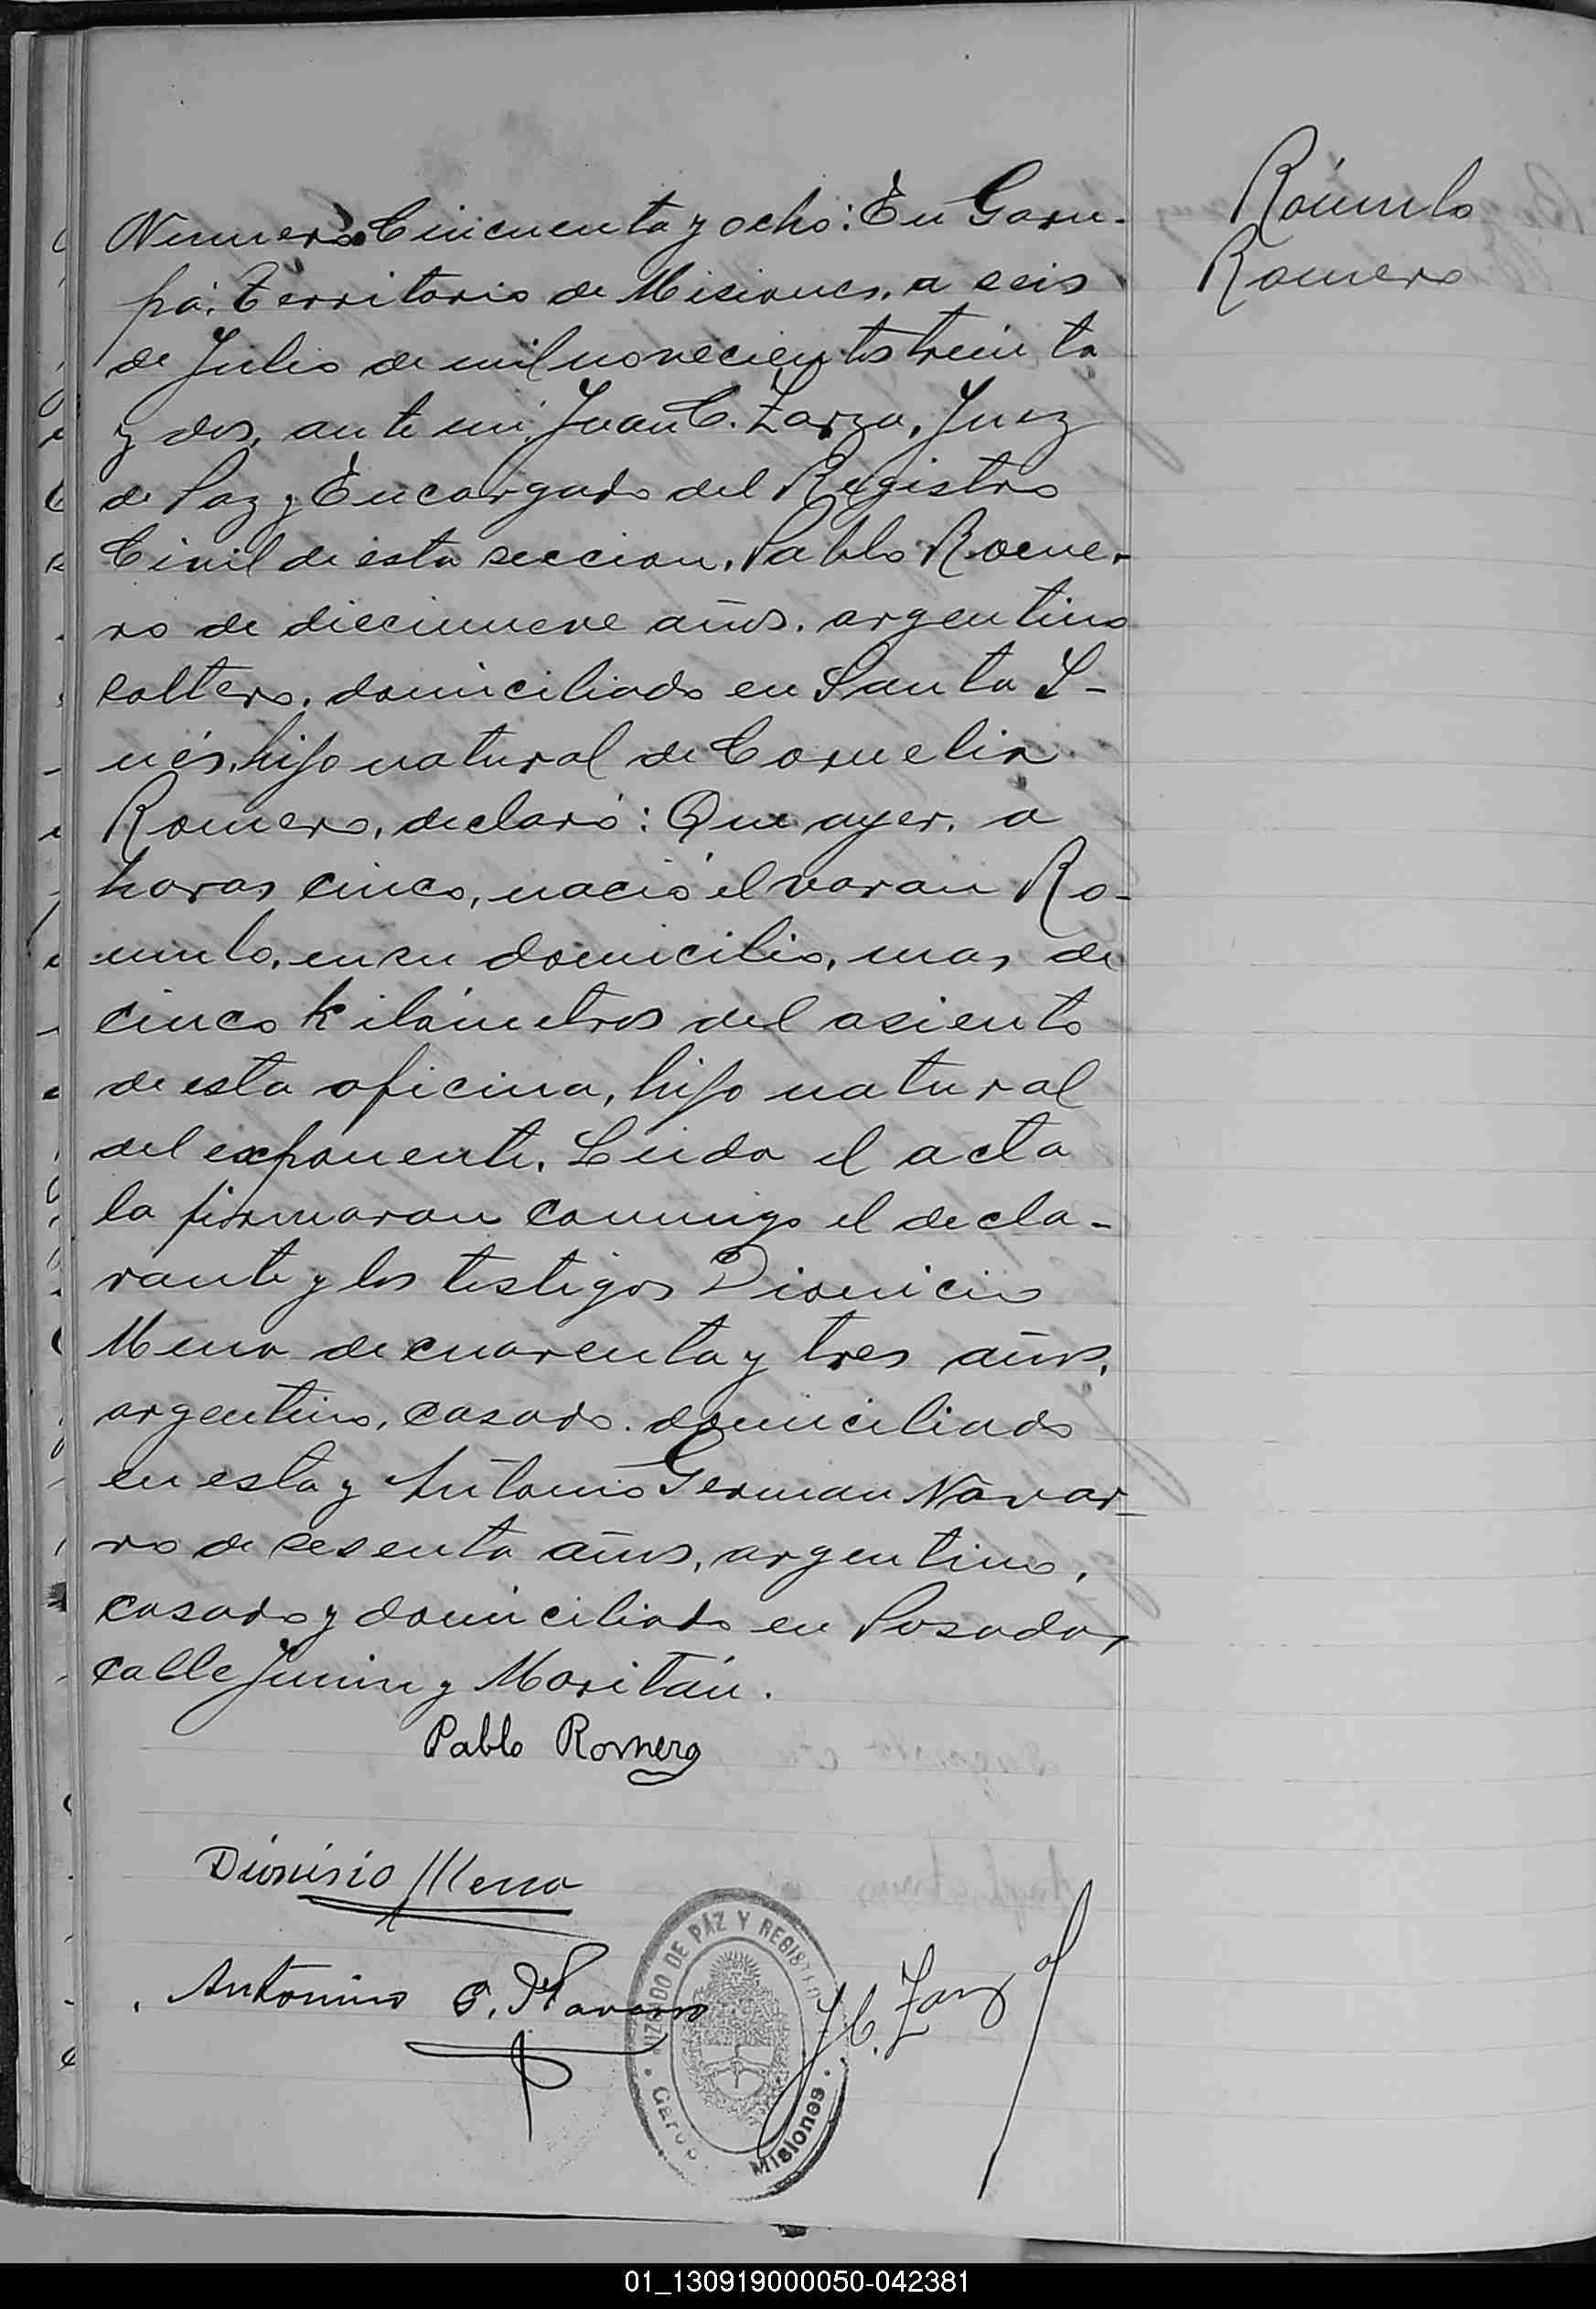 Rómulo
Romero
Numero Cincuenta y ocho: En Garu-
pá, Territorio de Misiones, a seis
de Julio de mil novecientos treinta
y dos, ante mi, Juan C. Zarza, Juez
de Paz y Encargado del Registro
Civil de esta seccion, Pablo Rome-
ro de diecinueve años, argentino
soltero, domiciliado en Santa I-
nés, hijo natural de Cornelia
Romero, declaró: Que ayer, a
horas cinco, nació el varon Ro-
mulo, en su domicilio, mas de
cinco kilómetros del asiento
de esta oficina, hijo natural
del exponente. Leida el acta
la firmaron conmigo el decla-
rante y los testigos Dionicio
Mena de cuarenta y tres años,
argentino, casado, domiciliado
en esta y Antonio German Navar-
ro de sesenta años, argentino,
casado y domiciliado en Posadas
calle Junin y Moritán.
Pablo Romero
Dionisio Mena
Antonino G. Navarro
J. C. Zarza
JUZGADO DE PAZ Y REGISTRO
Garupá
Misiones
01_130919000050-042381